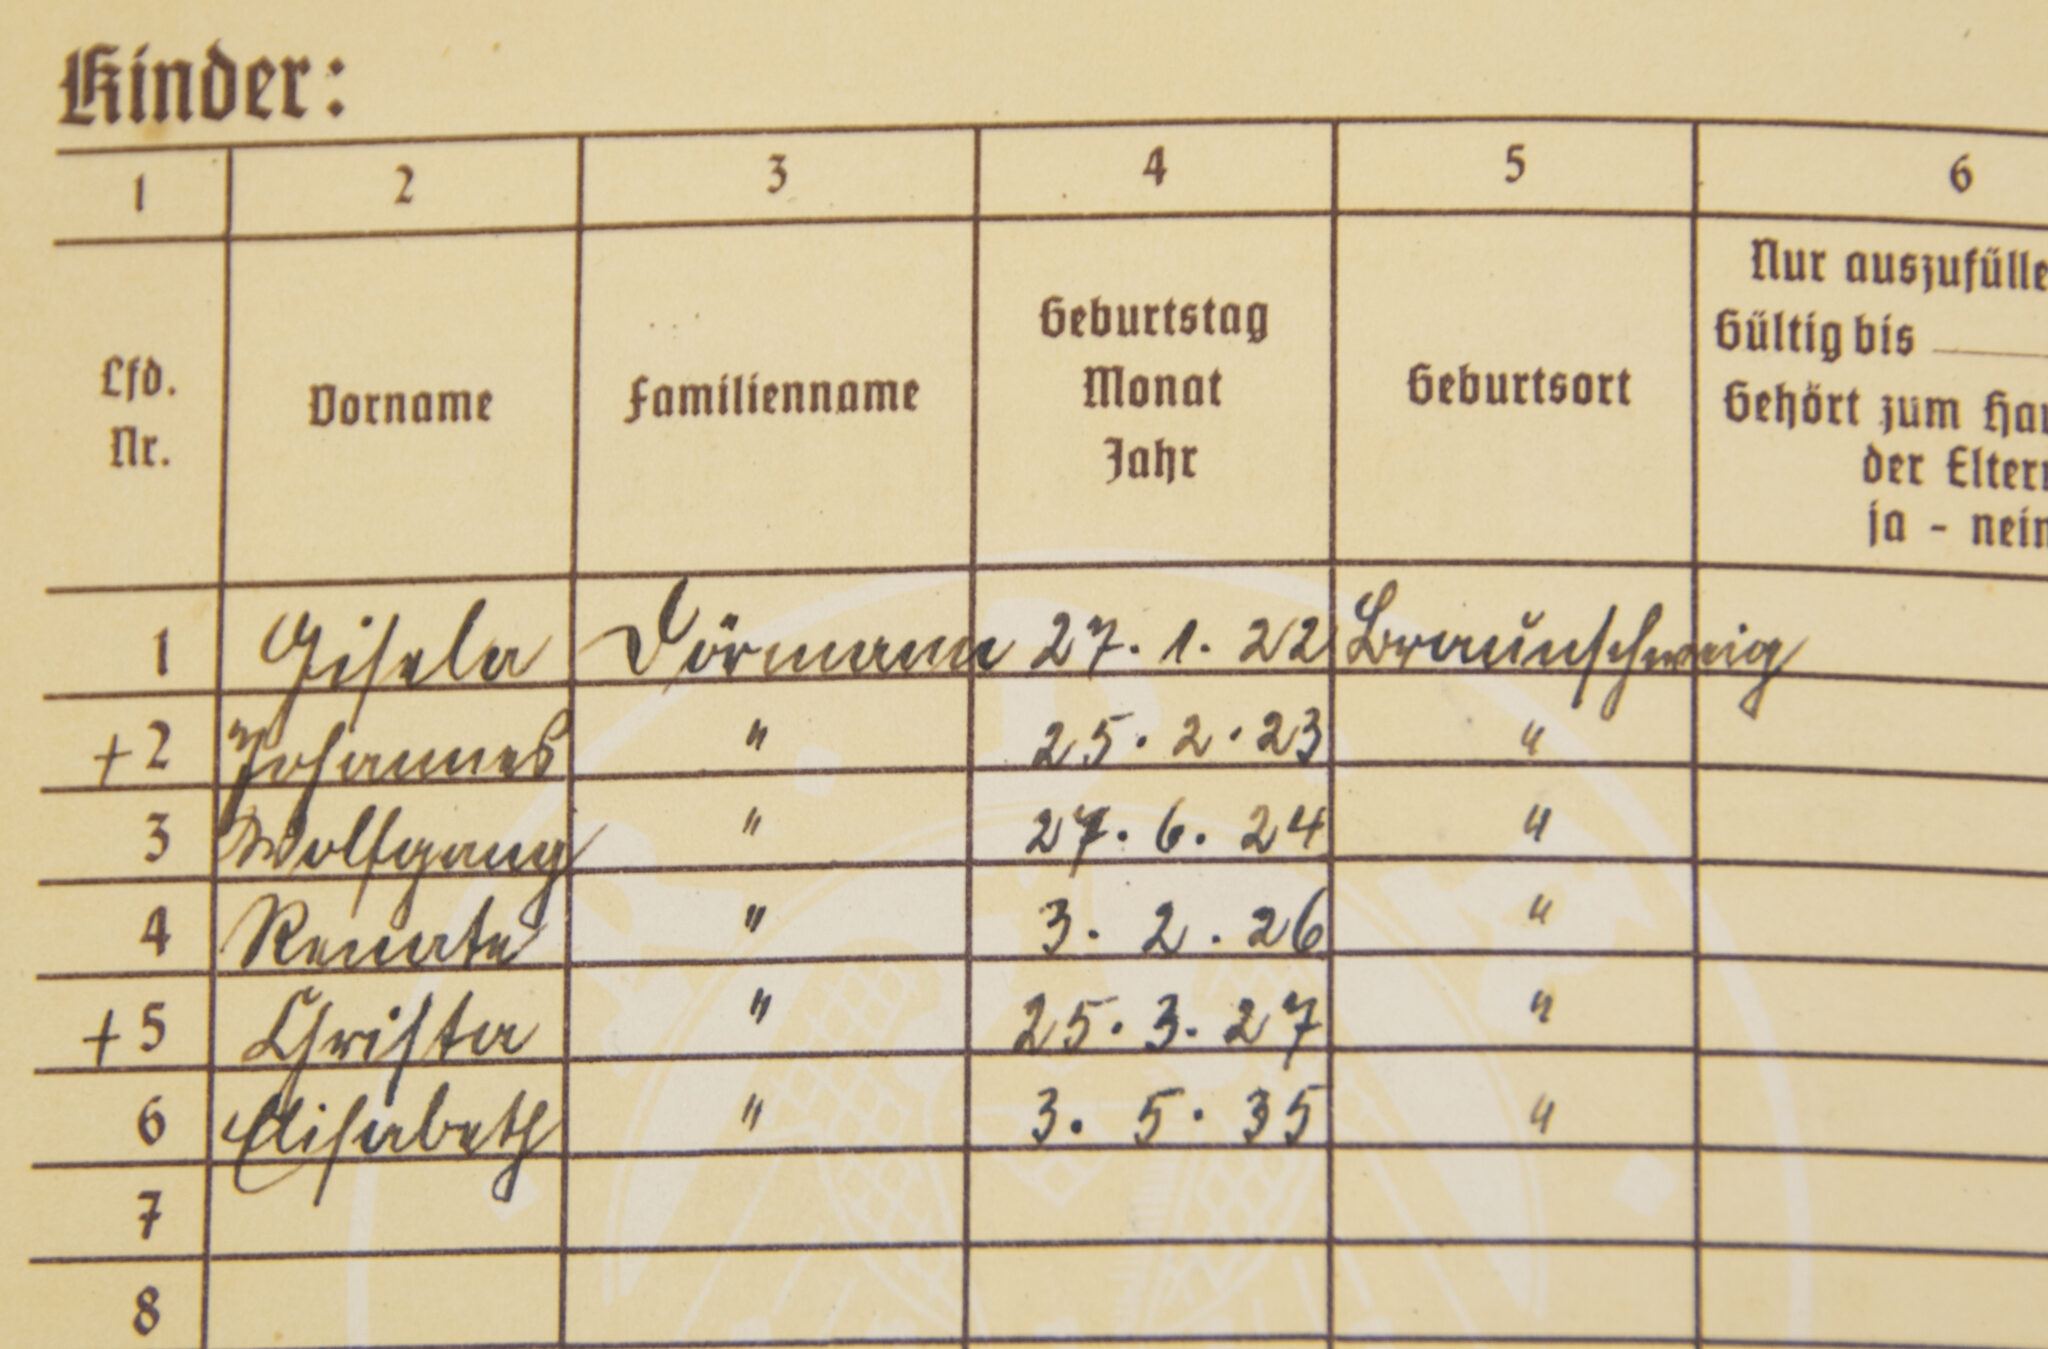 Kinder:
1 2 3 4 5 6
Lfd. Nr. Vorname Familienname Geburtstag Monat Jahr Geburtsort Nur auszufülle
Gültig bis
Gehört zum Hau
der Eltern
ja - nein
1 Gisela Dörmann 27. 1. 22 Braunschweig
+ 2 Johannes " 25. 2. 23 "
3 Wolfgang " 27. 6. 24 "
4 Renate " 3. 2. 26 "
+ 5 Christa " 25. 3. 27 "
6 Elisabeth " 3. 5. 35 "
7
8